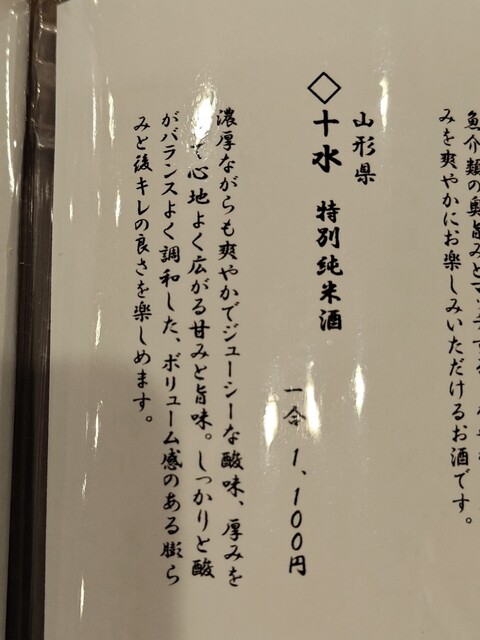 魚介類の奥旨みとマッチする、
みを爽やかにお楽しみいただけるお酒です。
山形県
◇十水 特別純米酒
一合 1,100円
濃厚ながらも爽やかでジューシーな酸味、厚みを
て心地よく広がる甘みと旨味。しっかりと酸
がバランスよく調和した、ボリューム感のある膨ら
みと後キレの良さを楽しめます。